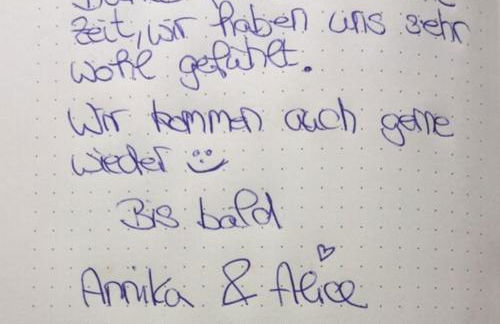 Zeit, wir haben uns sehr
wohl gefühlt.
Wir kommen auch gerne
wieder :)
Bis bald
Annika & Alice